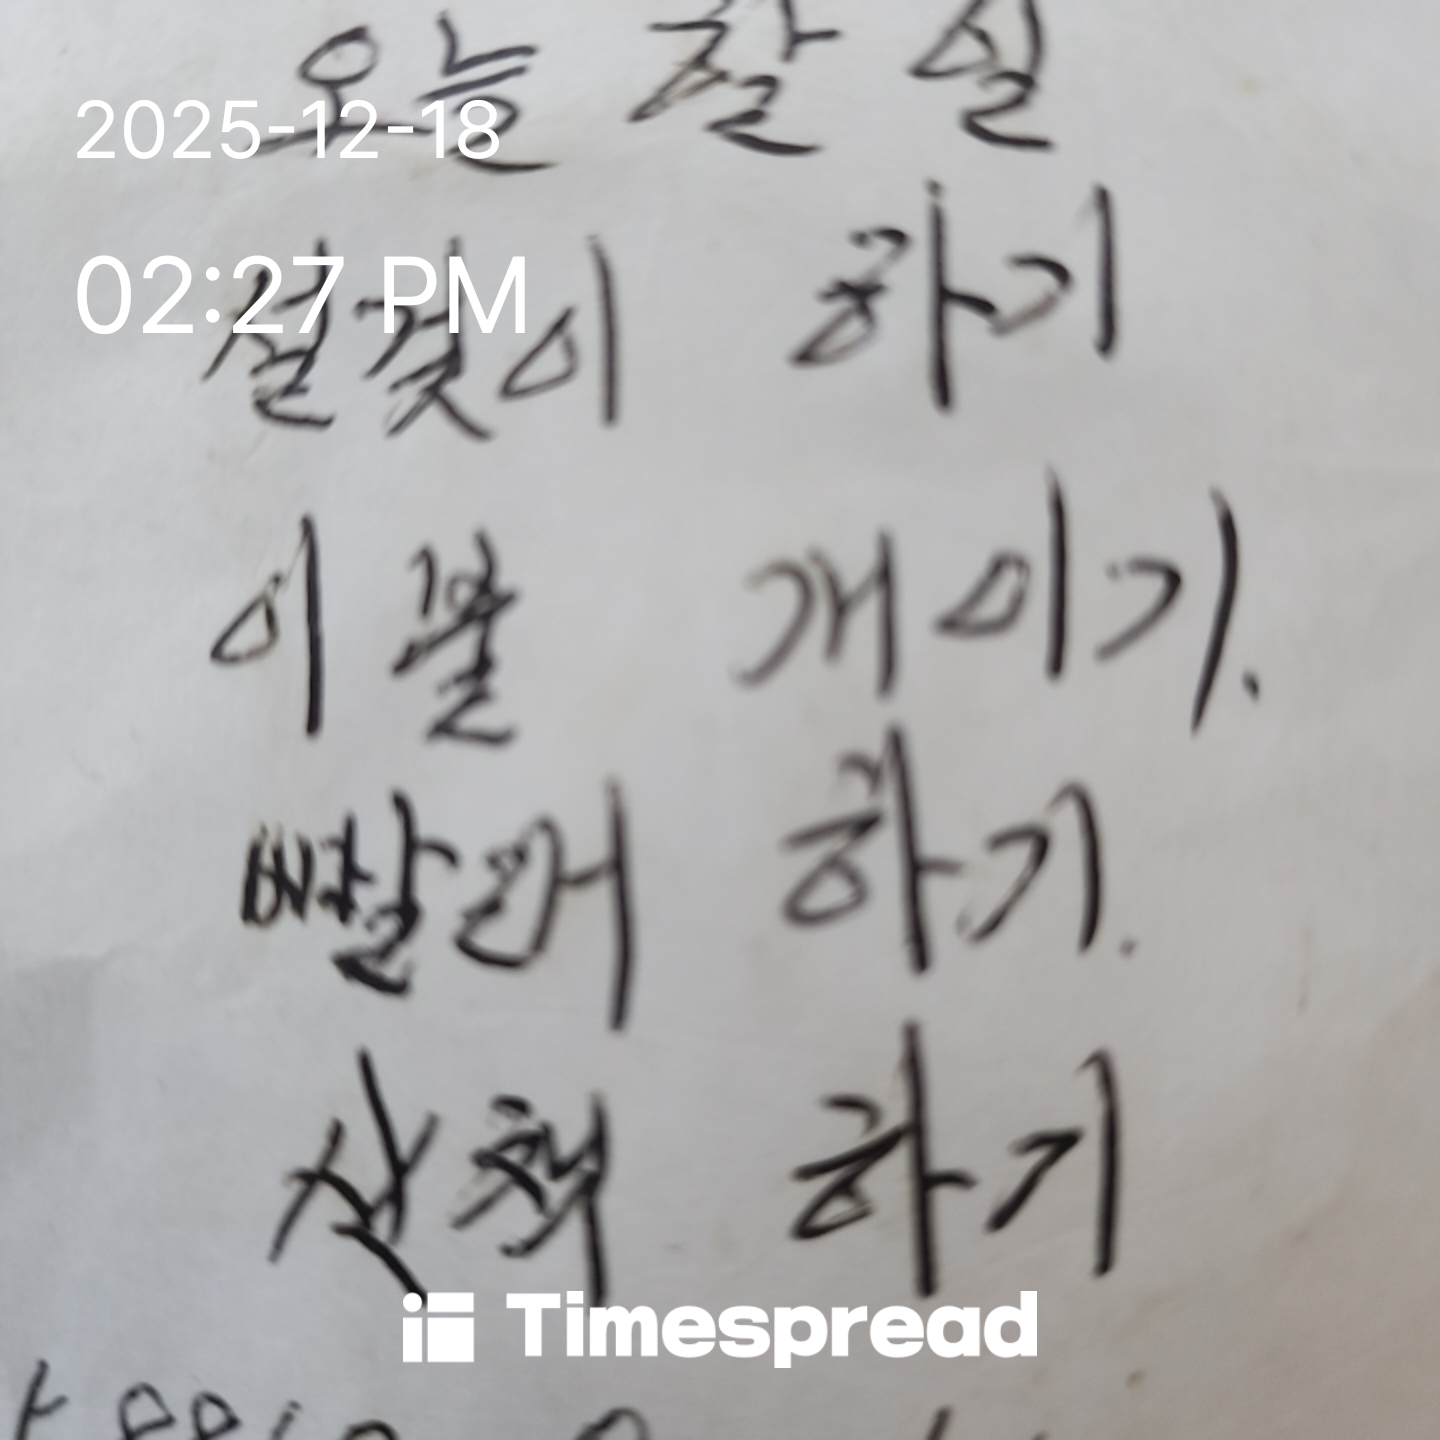 오늘 할 일
2025-12-18
설겆이 하기
02:27 PM
이불 개이기.
빨래 하기.
산책 하기
Timespread